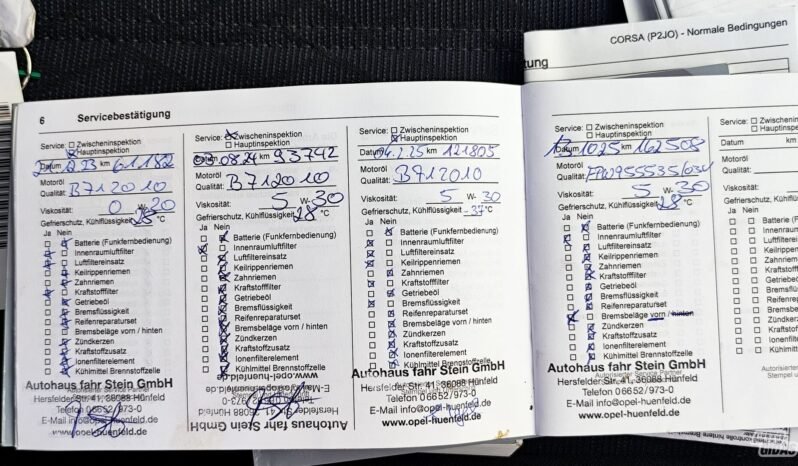 CORSA (P2JO) - Normale Bedingungen
tung
6 Servicebestätigung
Service: Zwischeninspektion
Hauptinspektion
Datum km 61.182
Motoröl
Qualität: B712010
Viskosität: 0 W- 20
Gefrierschutz, Kühlflüssigkeit 28 °C
Ja Nein
Batterie (Funkfernbedienung)
Innenraumluftfilter
Luftfiltereinsatz
Keilrippenriemen
Zahnriemen
Kraftstofffilter
Getriebeöl
Bremsflüssigkeit
Reifenreparaturset
Bremsbeläge vorn / hinten
Zündkerzen
Kraftstoffzusatz
Ionenfilterelement
Kühlmittel Brennstoffzelle
Autohaus fahr Stein GmbH
Hersfelder Str. 41, 36088 Hünfeld
Telefon 06652/973-0
E-Mail info@opel-huenfeld.de
www.opel-huenfeld.de
Service: Zwischeninspektion
Hauptinspektion
Datum 03.08.24 km 93742
Motoröl
Qualität: B712010
Viskosität: 5 W- 30
Gefrierschutz, Kühlflüssigkeit 28 °C
Ja Nein
Batterie (Funkfernbedienung)
Innenraumluftfilter
Luftfiltereinsatz
Keilrippenriemen
Zahnriemen
Kraftstofffilter
Getriebeöl
Bremsflüssigkeit
Reifenreparaturset
Bremsbeläge vorn / hinten
Zündkerzen
Kraftstoffzusatz
Ionenfilterelement
Kühlmittel Brennstoffzelle
www.opel-huenfeld.de
Hersfelder Str. 41, 36088 Hünfeld
Autohaus fahr Stein GmbH
Service: Zwischeninspektion
Hauptinspektion
Datum 04.2.25 km 121805
Motoröl
Qualität: B712010
Viskosität: 5 W- 30
Gefrierschutz, Kühlflüssigkeit -37 °C
Ja Nein
Batterie (Funkfernbedienung)
Innenraumluftfilter
Luftfiltereinsatz
Keilrippenriemen
Zahnriemen
Kraftstofffilter
Getriebeöl
Bremsflüssigkeit
Reifenreparaturset
Bremsbeläge vorn / hinten
Zündkerzen
Kraftstoffzusatz
Ionenfilterelement
Kühlmittel Brennstoffzelle
Autohaus fahr Stein GmbH
Hersfelder Str. 41, 36088 Hünfeld
Telefon 06652/973-0
E-Mail info@opel-huenfeld.de
www.opel-huenfeld.de
Service: Zwischeninspektion
Hauptinspektion
Datum km 162508
Motoröl
Qualität:
Viskosität: 5 W- 30
Gefrierschutz, Kühlflüssigkeit 28 °C
Ja Nein
Batterie (Funkfernbedienung)
Innenraumluftfilter
Luftfiltereinsatz
Keilrippenriemen
Zahnriemen
Kraftstofffilter
Getriebeöl
Bremsflüssigkeit
Reifenreparaturset
Bremsbeläge vorn / hinten
Zündkerzen
Kraftstoffzusatz
Ionenfilterelement
Kühlmittel Brennstoffzelle
Autorisierter Service Partner
Autohaus fahr Stein GmbH
Hersfelder Str. 41, 36088 Hünfeld
Telefon 06652/973-0
E-Mail info@opel-huenfeld.de
www.opel-huenfeld.de
Service:
Datum
Motoröl
Qualität:
Viskosität:
Gefrierschutz, Kühlfl
Ja Nein
Batterie (Fu
Innenraum
Luftfilterei
Keilrippen
Zahnrieme
Kraftstoff
Getriebeö
Bremsflü
Reifenre
Bremsb
Zündke
Kraftsto
Ionenfi
Kühlmi
Autoris
Stempel u
GIDAS